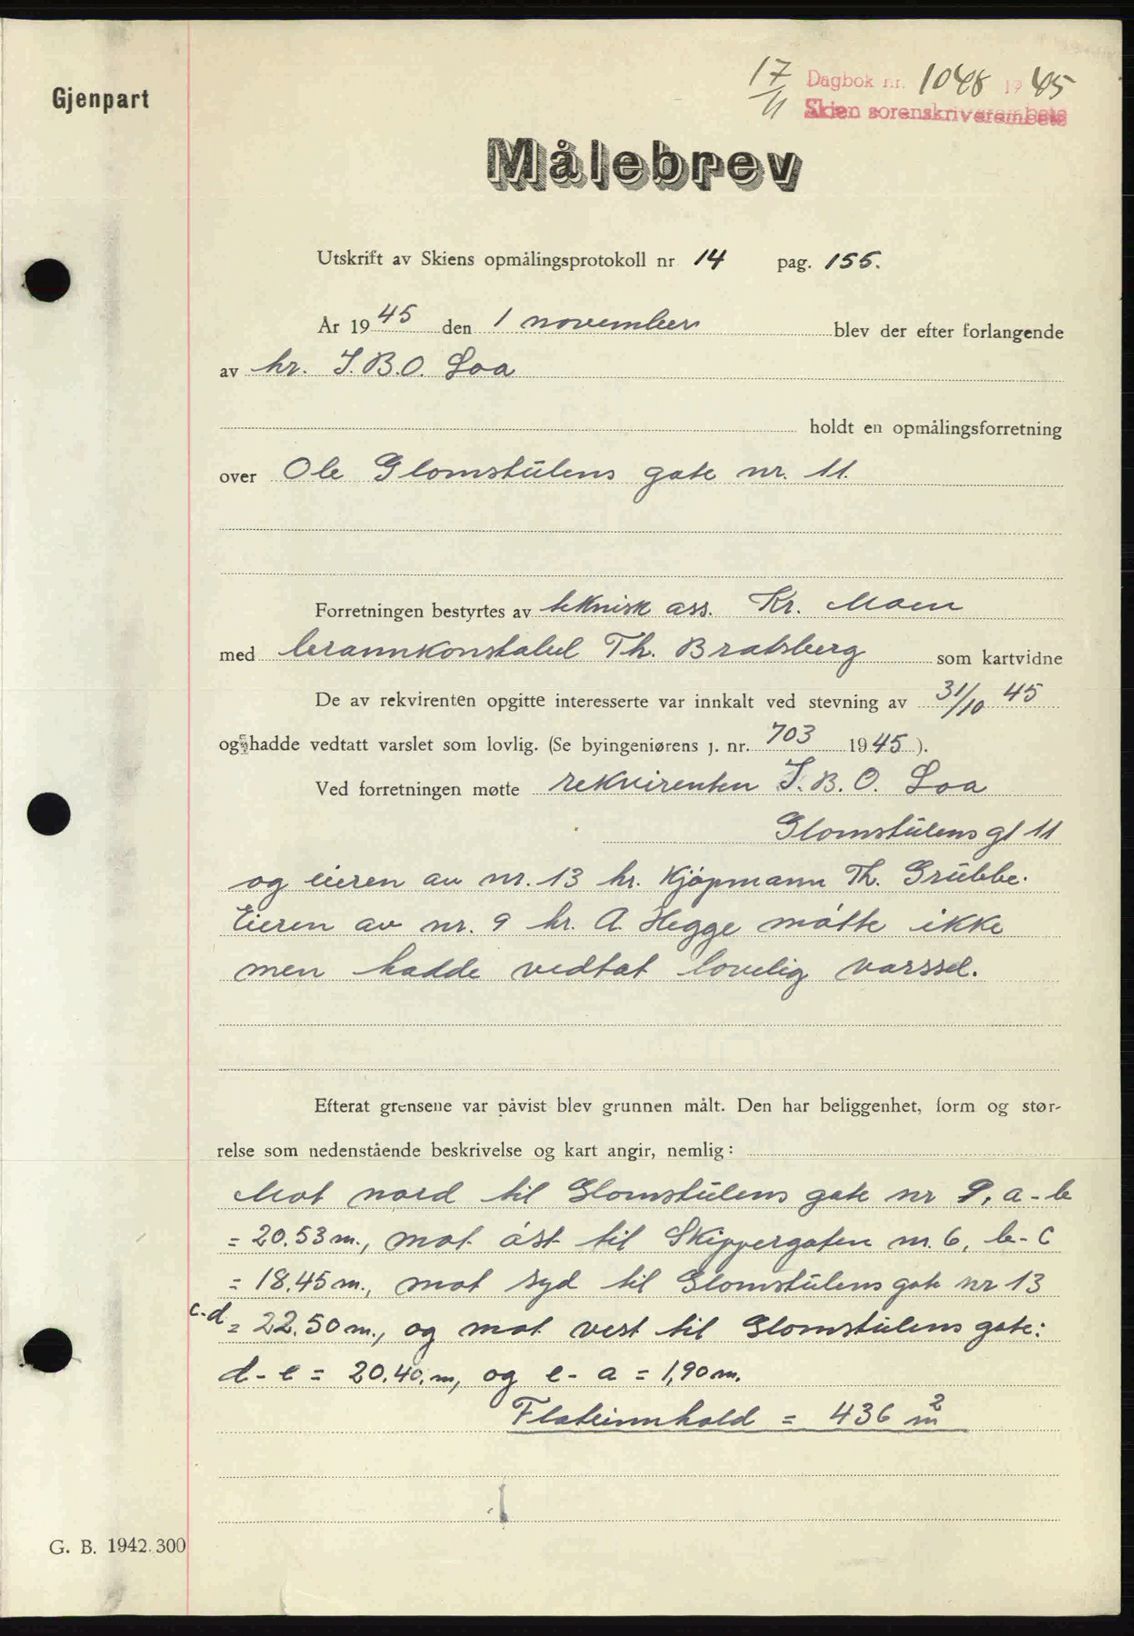 Gjenpart
17/11 Dagbok nr. 1048 1945
Skien sorenskriverembete
Målebrev
Utskrift av Skiens opmålingsprotokoll nr 14 pag. 155.
År 1945 den 1 november blev der efter forlangende
av hr. I.B.O. Loa
holdt en opmålingsforretning
over Ole Glomstulens gate nr. 11.
Forretningen bestyrtes av teknisk ass. Kr. Moen
med brannkonstabel Th. Bratsberg som kartvidne
De av rekvirenten opgitte interesserte var innkalt ved stevning av 31/10 45
og hadde vedtatt varslet som lovlig. (Se byingeniørens j. nr. 703 1945).
Ved forretningen møtte rekvirenten I. B. O. Loa
Glomstulens gt 11
og eieren av nr. 13 hr. Kjøpmann Th. Grubbe.
Eieren av nr. 9 hr. A. Hegge møtte ikke
men hadde vedtat lovelig varssel.
Efterat grensene var påvist blev grunnen målt. Den har beliggenhet, form og stør-
relse som nedenstående beskrivelse og kart angir, nemlig:
Mot nord til Glomstulens gate nr 9, a-b
= 20.53 m., mot øst til Skippergaten nr. 6, b-c
= 18.45 m., mot syd til Glomstulens gate nr 13
c-d = 22.50 m., og mot vest til Glomstulens gate:
d-e = 20.40. m, og e-a = 1,90 m.
Flateinnhold = 436 m²
G. B. 1942. 300